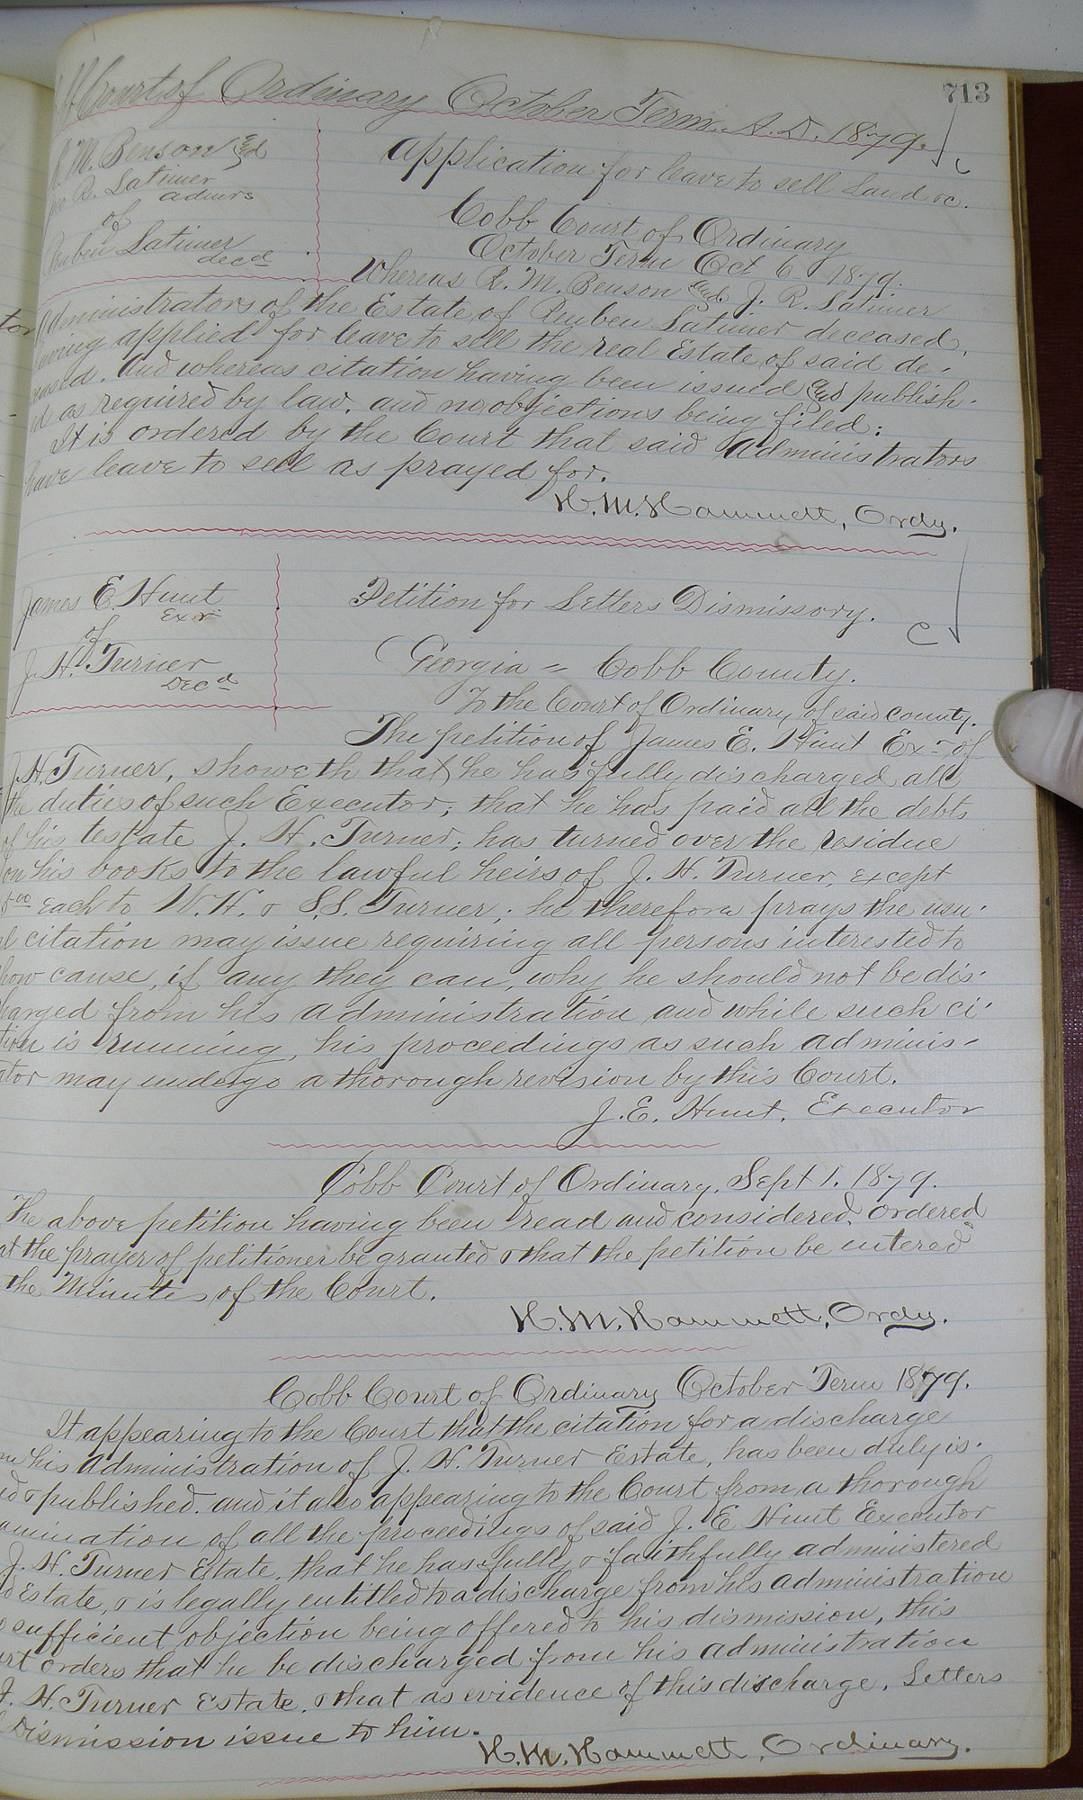 713
Court of Ordinary October Term A. D. 1879.
R. M. Benson &
J. R. Latimer
admrs
of
Reuben Latimer
decd
Application for leave to sell Land &c.
Cobb Court of Ordinary
October Term Oct 6 1879.
Whereas R. M. Benson and J. R. Latimer
Administrators of the Estate of Reuben Latimer deceased,
having applied for leave to sell the real Estate of said de-
ceased. And whereas citation having been issued and publish-
ed as required by law, and no objections being filed:
It is ordered by the Court that said Administrators
have leave to sell as prayed for.
H. M. Hammett, Ordy.
James E. Hunt
Exor
of
J. H. Turner
Decd
Petition for Letters Dismissory.
C
Georgia = Cobb County.
To the Court of Ordinary of said county.
The petition of James E. Hunt Exr of
J. H. Turner, showeth that he has fully discharged all
the duties of such Executor; that he has paid all the debts
of his testate J. H. Turner; has turned over the residue
on his books to the lawful heirs of J. H. Turner, except
each to W. H. & S. S. Turner; he therefore prays the usu-
al citation may issue requiring all persons interested to
show cause, if any they can, why he should not be dis-
harged from his administration and while such ci-
tion is running, his proceedings as such adminis-
ator may undergo a thorough revision by this Court.
J. E. Hunt, Executor
Cobb Court of Ordinary, Sept 1. 1879.
The above petition having been read and considered, ordered
at the prayer of petitioner be granted & that the petition be entered
the Minutes of the Court.
H. M. Hammett, Ordy.
Cobb Court of Ordinary October Term 1879.
It appearing to the Court that the citation for a discharge
m his administration of J. H. Turner Estate, has been duly is-
ed & published. and it also appearing to the Court from a thorough
amination of all the proceedings of said J. E. Hunt Executor
J. H. Turner Estate, that he has fully & faithfully administered
d Estate, & is legally entitled to a discharge from his administration
o sufficient objection being offered to his dismission, this
urt orders that he be discharged from his administration
J. H. Turner Estate. & that as evidence of this discharge, Letters
Dismission issue to him.
H. M. Hammett, Ordinary.